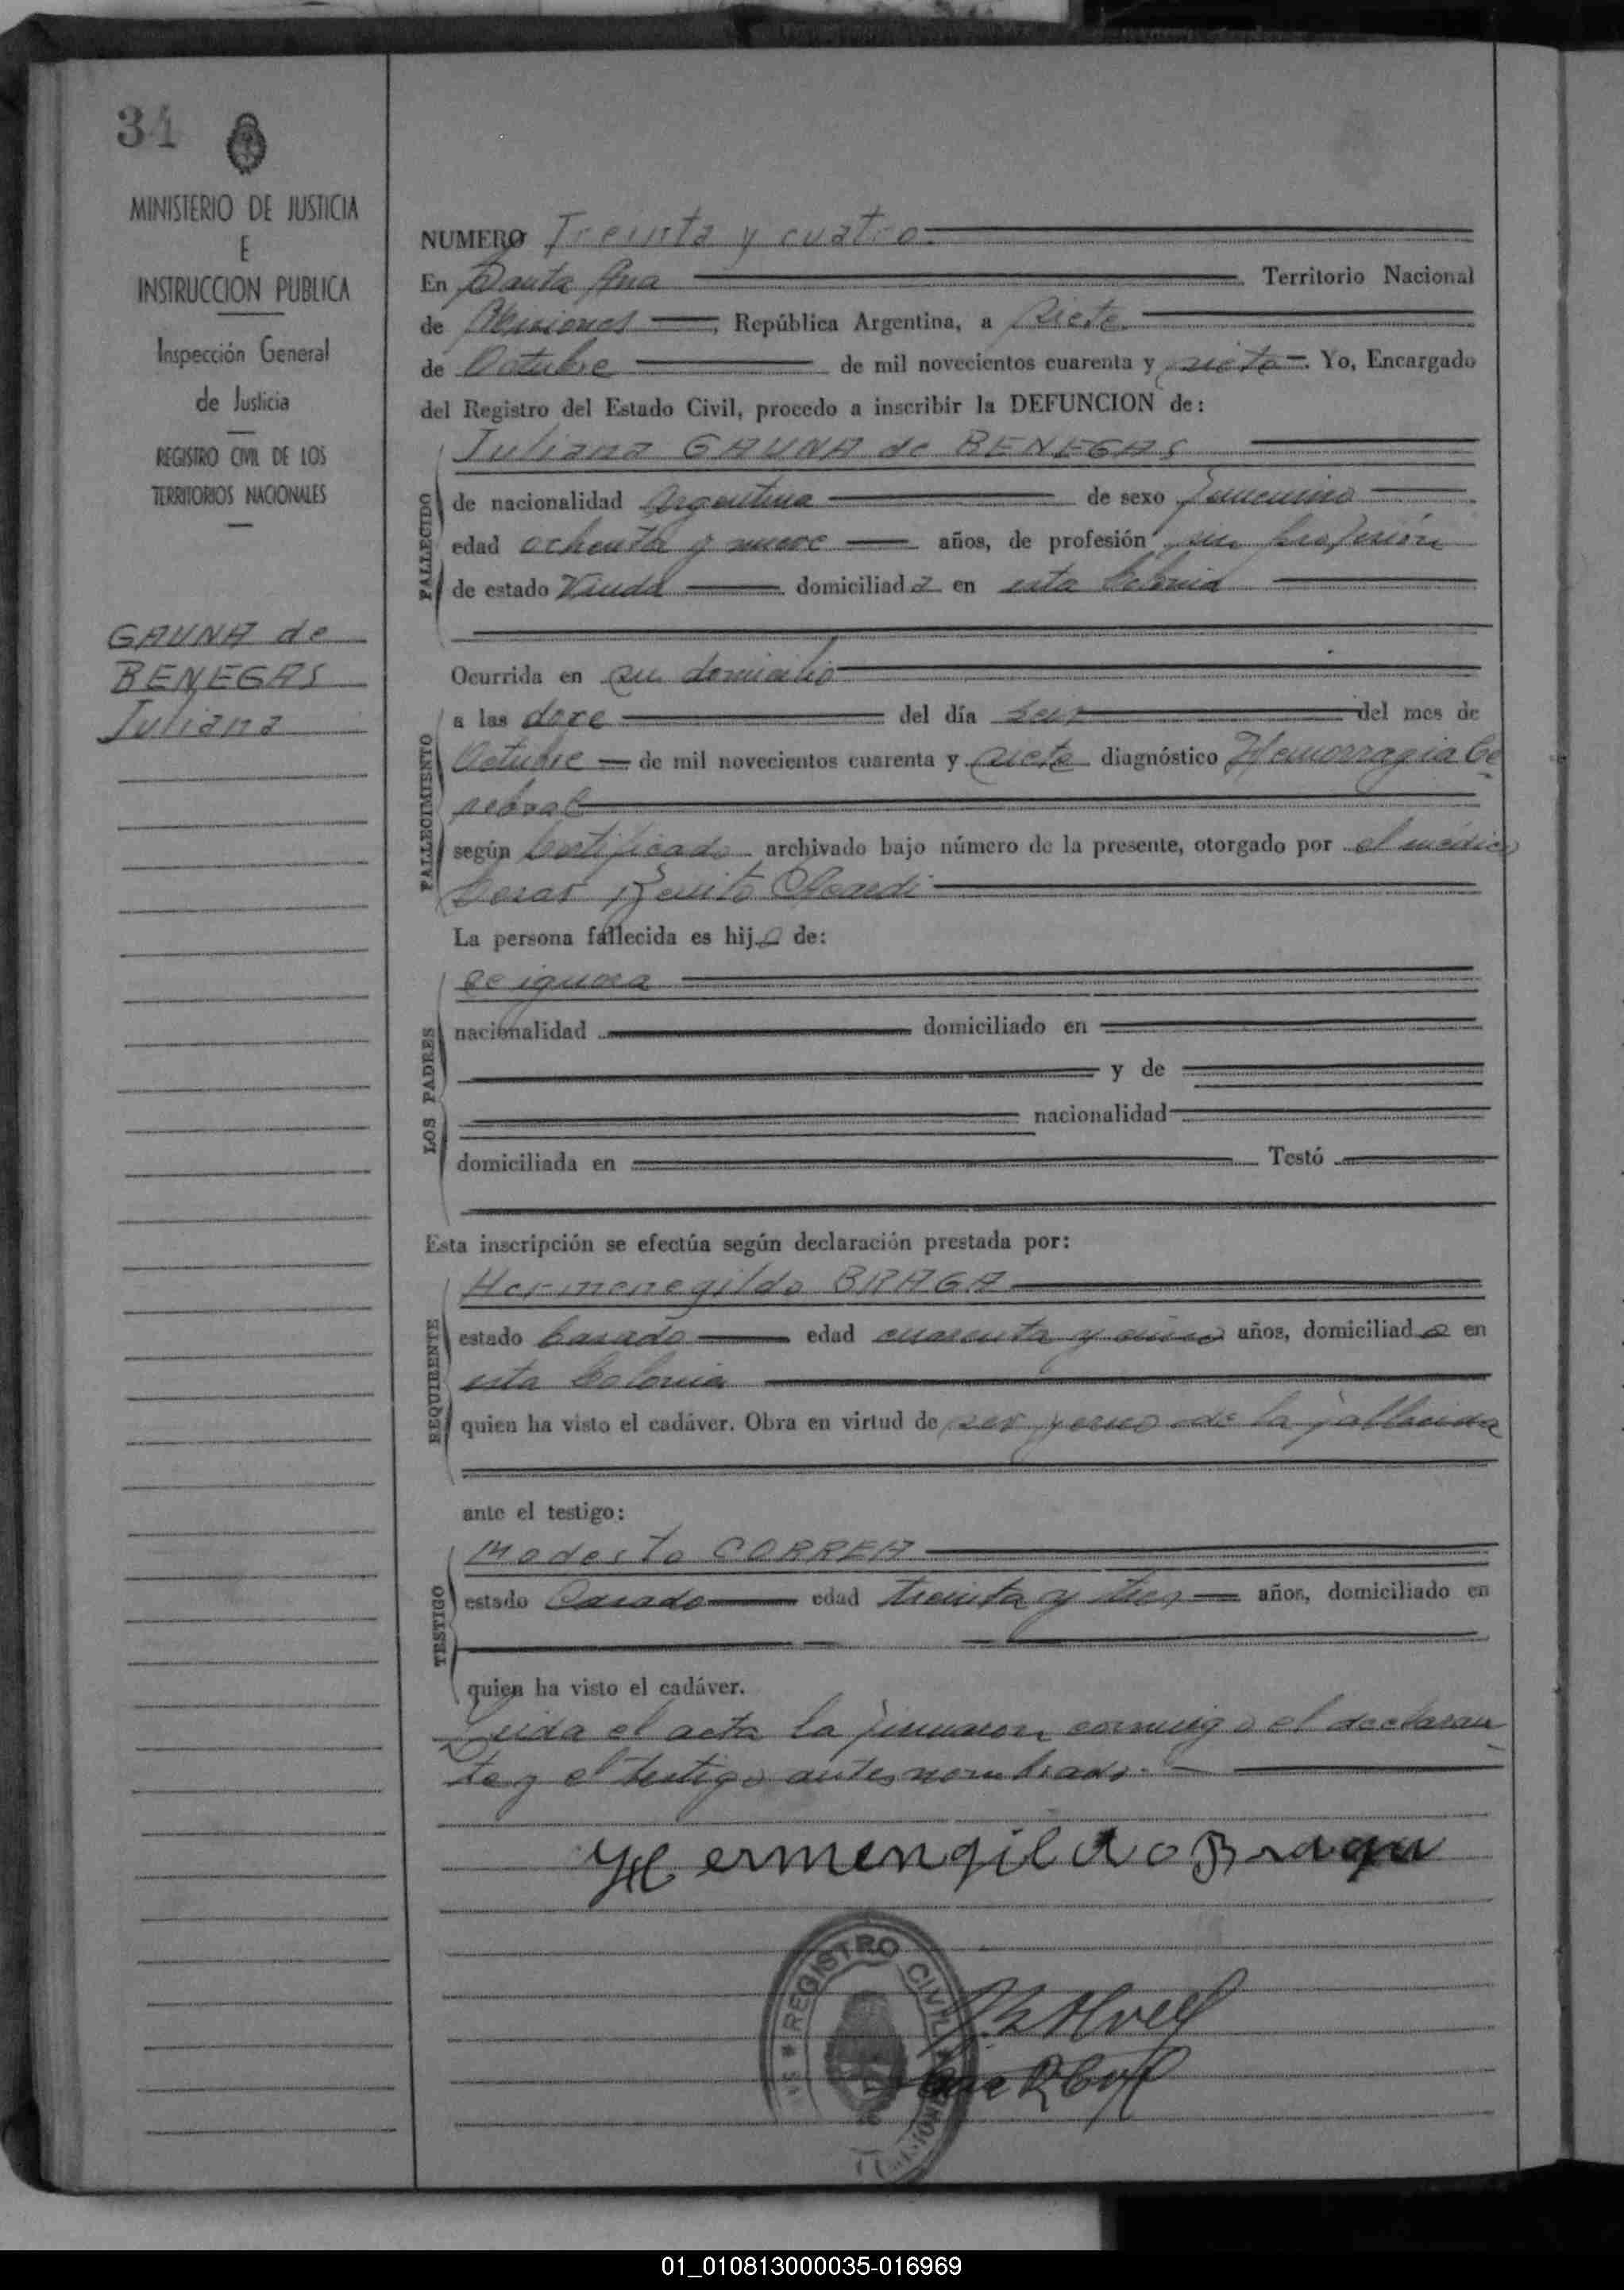 34
MINISTERIO DE JUSTICIA
E
INSTRUCCION PUBLICA
Inspección General
de Justicia
REGISTRO CIVIL DE LOS
TERRITORIOS NACIONALES
GAUNA de
BENEGAS
Juliana
NUMERO Treinta y cuatro
En Santa Ana Territorio Nacional
de Misiones, República Argentina, a siete
de Octubre de mil novecientos cuarenta y siete. Yo, Encargado
del Registro del Estado Civil, procedo a inscribir la DEFUNCION de:
Juliana GAUNA de BENEGAS
FALLECIDO
de nacionalidad Argentina de sexo femenino
edad ochenta y nueve años, de profesión sin profesión
de estado Viuda domiciliada en esta Colonia
Ocurrida en su domicilio
FALLECIMIENTO
a las doce del día seis del mes de
Octubre de mil novecientos cuarenta y siete diagnóstico Hemorragia Ce
rebral
según Certificado archivado bajo número de la presente, otorgado por el médico
Cesar Benito
La persona fallecida es hija de:
LOS PADRES
se ignora
nacionalidad domiciliado en
y de
nacionalidad
domiciliada en Testó
Esta inscripción se efectúa según declaración prestada por:
REQUIRENTE
Hermenegildo BRAGA
estado casado edad cuarenta y cinco años, domiciliado en
esta Colonia
quien ha visto el cadáver. Obra en virtud de ser yerno de la fallecida
ante el testigo:
TESTIGO
Modesto CORREA
estado Casado edad treinta y tres años, domiciliado en
quien ha visto el cadáver.
Leida el acta la firmaron conmigo el declaran-
te y el testigo antes nombrado.
Hermengildo Braga
REGISTRO CIVIL
01_010813000035-016969